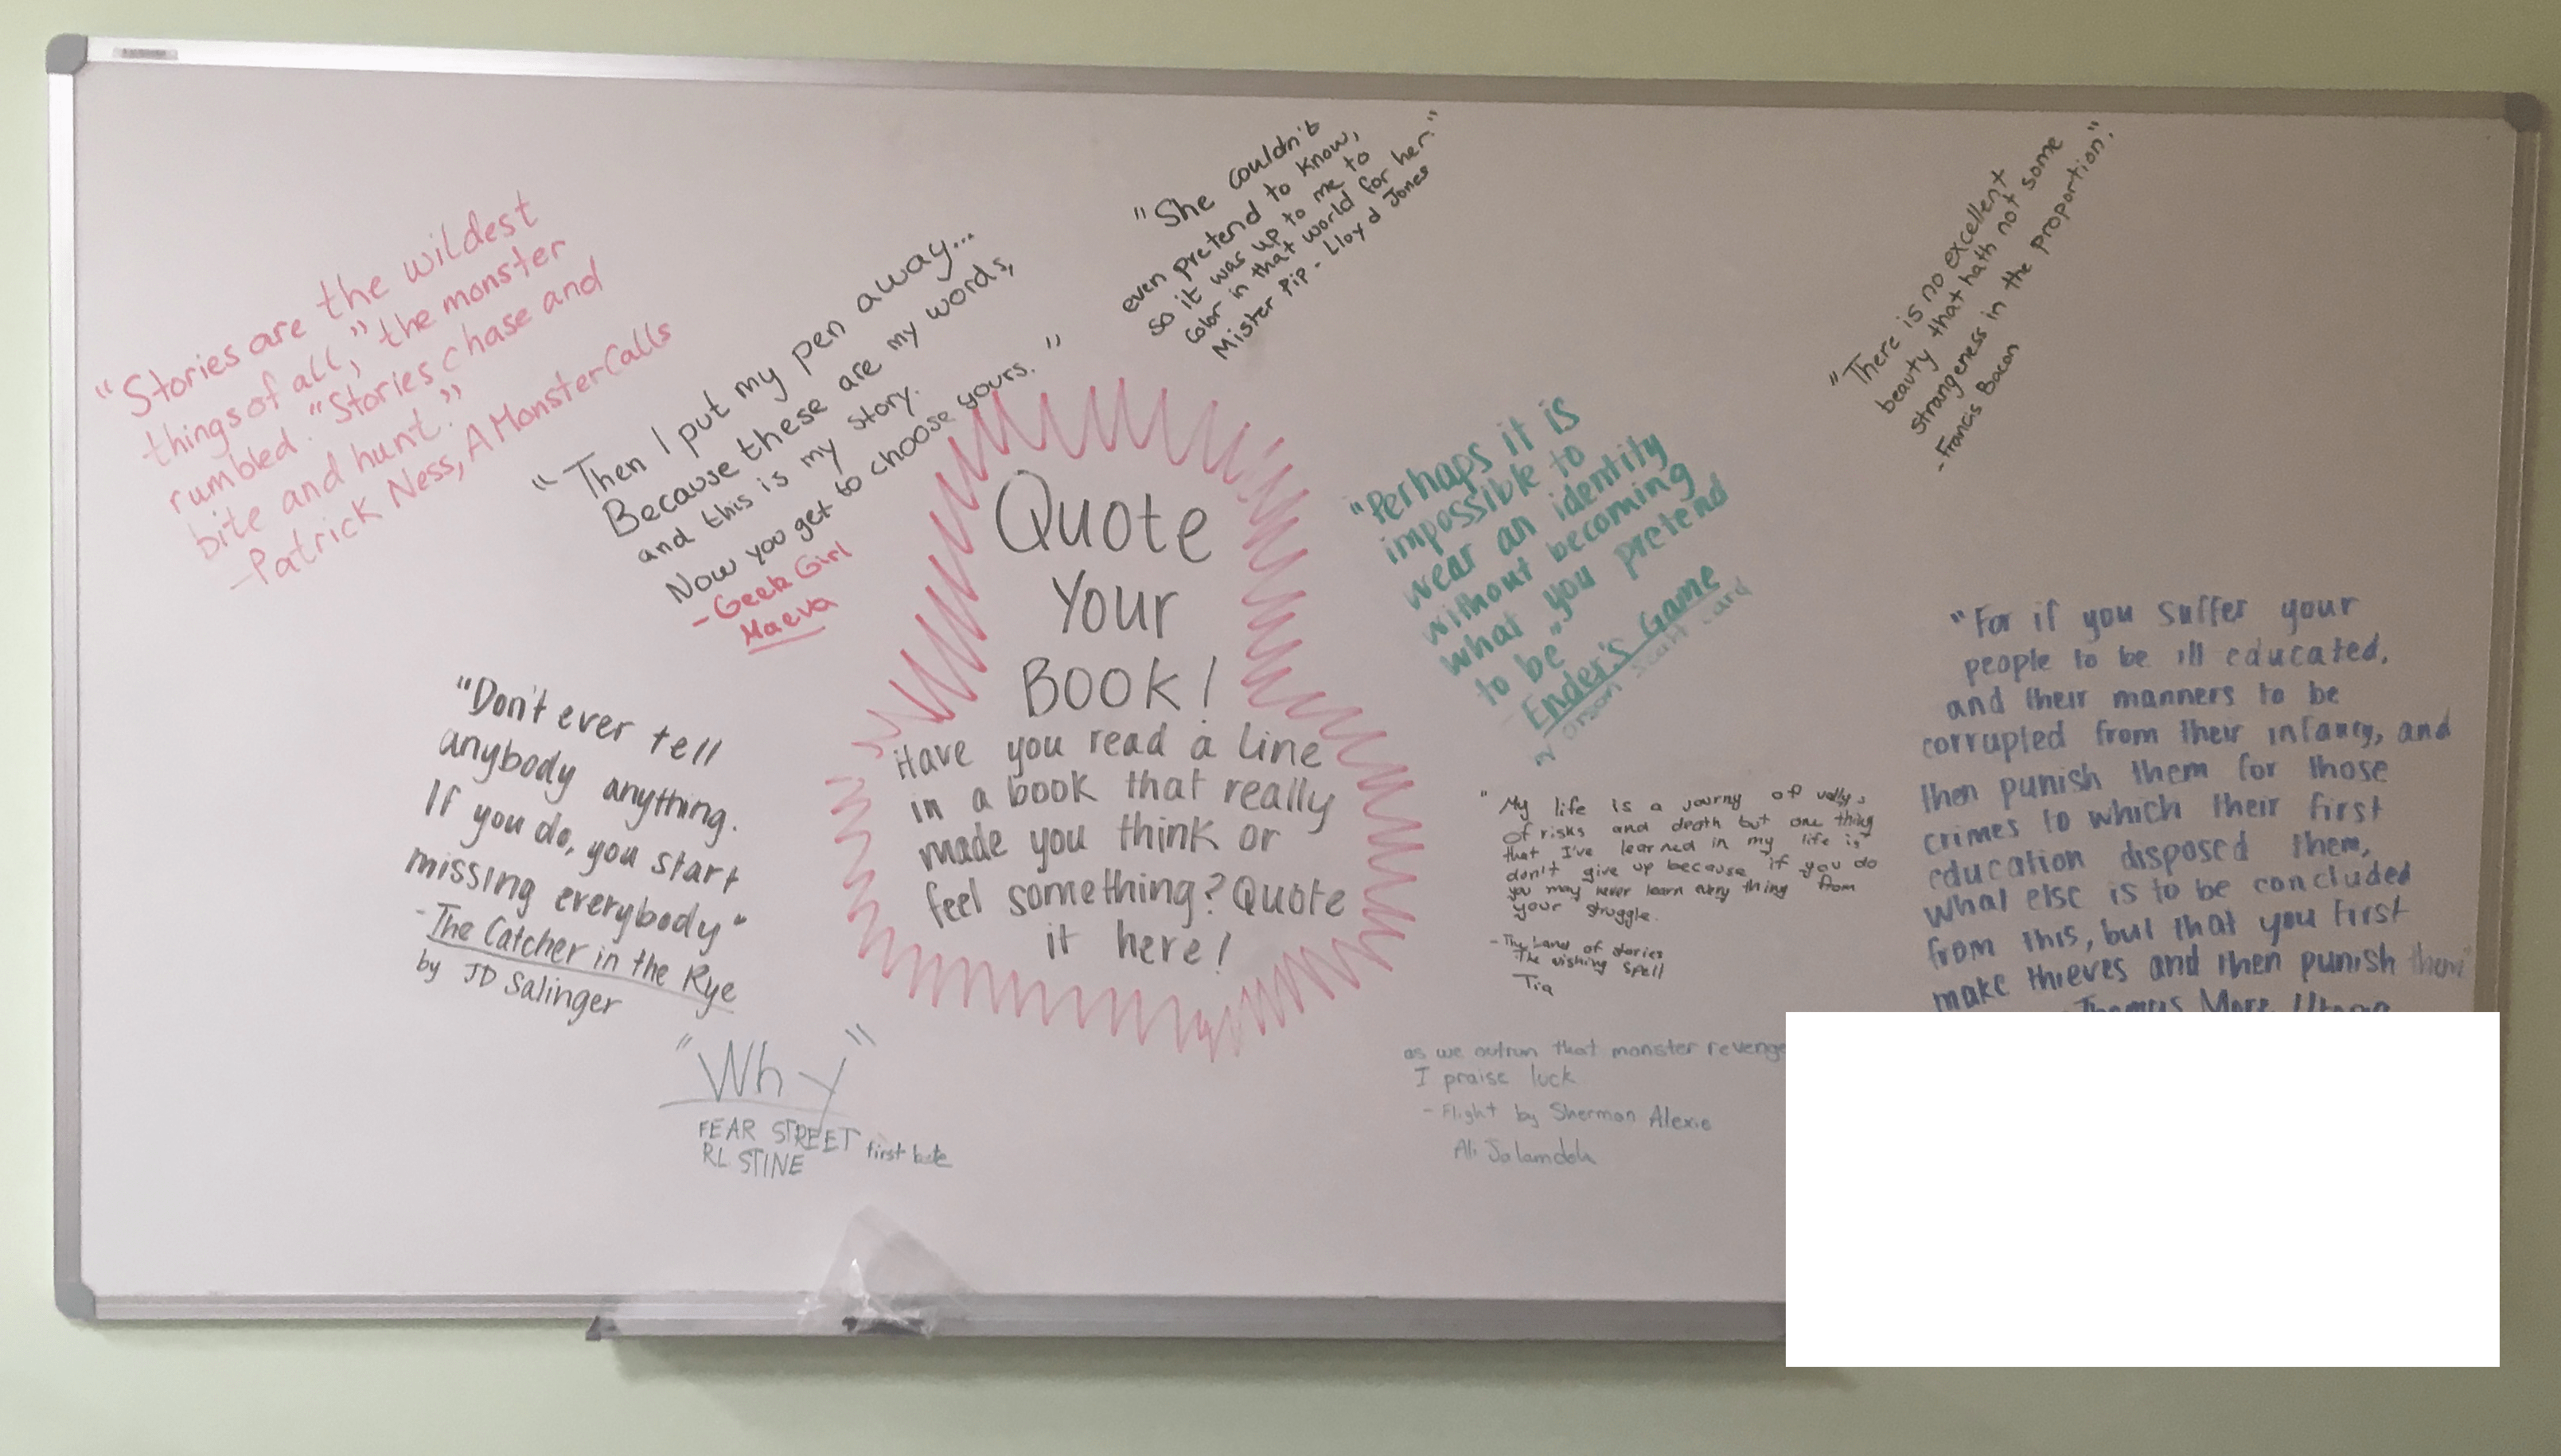 "Stories are the wildest
things of all," the monster
rumbled. "Stories chase and
bite and hunt."
-Patrick Ness, A Monster Calls
"Then I put my pen away...
Because these are my words,
and this is my story.
Now you get to choose yours."
-Geek Girl
Maeva
"She couldn't
even pretend to know,
so it was up to me to
color in that world for her."
Mister Pip - Lloyd Jones
"There is no excellent
beauty that hath not some
strangeness in the proportion."
-Francis Bacon
Quote
Your
BOOK!
Have you read a line
in a book that really
made you think or
feel something? Quote
it here!
"Perhaps it is
impossible to
wear an identity
without becoming
what you pretend
to be"
Ender's Game
Orson Scott Card
"Don't ever tell
anybody anything.
If you do, you start
missing everybody"
-The Catcher in the Rye
by JD Salinger
"My life is a journy of vallys
of risks and death but one thing
that I've learned in my life is
don't give up because if you do
you may never learn every thing from
your struggle.
-The Land of stories
The wishing spell
Tia
"For if you suffer your
people to be ill educated,
and their manners to be
corrupted from their infancy, and
then punish them for those
crimes to which their first
education disposed them,
what else is to be concluded
from this, but that you first
make thieves and then punish them"
Thomas More, Utopia
"Why"
FEAR STREET first bite
RL STINE
as we outrun that monster revenge
I praise luck
- Flight by Sherman Alexie
Ali